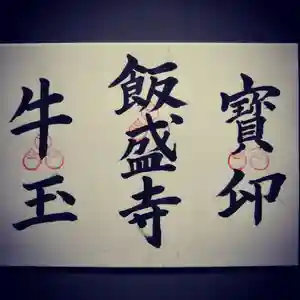 牛玉
飯盛寺
寶印